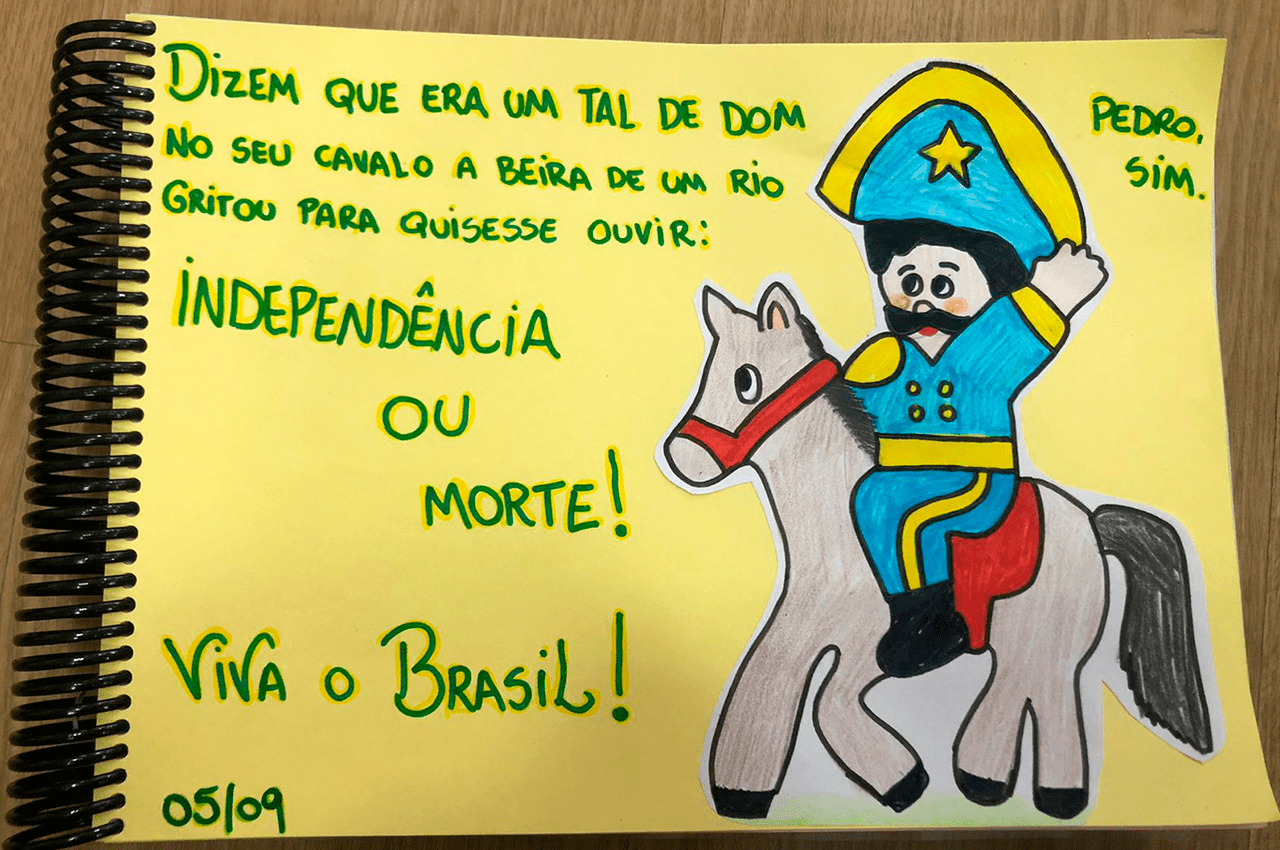 DIZEM QUE ERA UM TAL DE DOM PEDRO,
NO SEU CAVALO A BEIRA DE UM RIO SIM.
GRITOU PARA QUISESSE OUVIR:
INDEPENDÊNCIA
OU
MORTE!
VIVA O BRASIL!
05/09